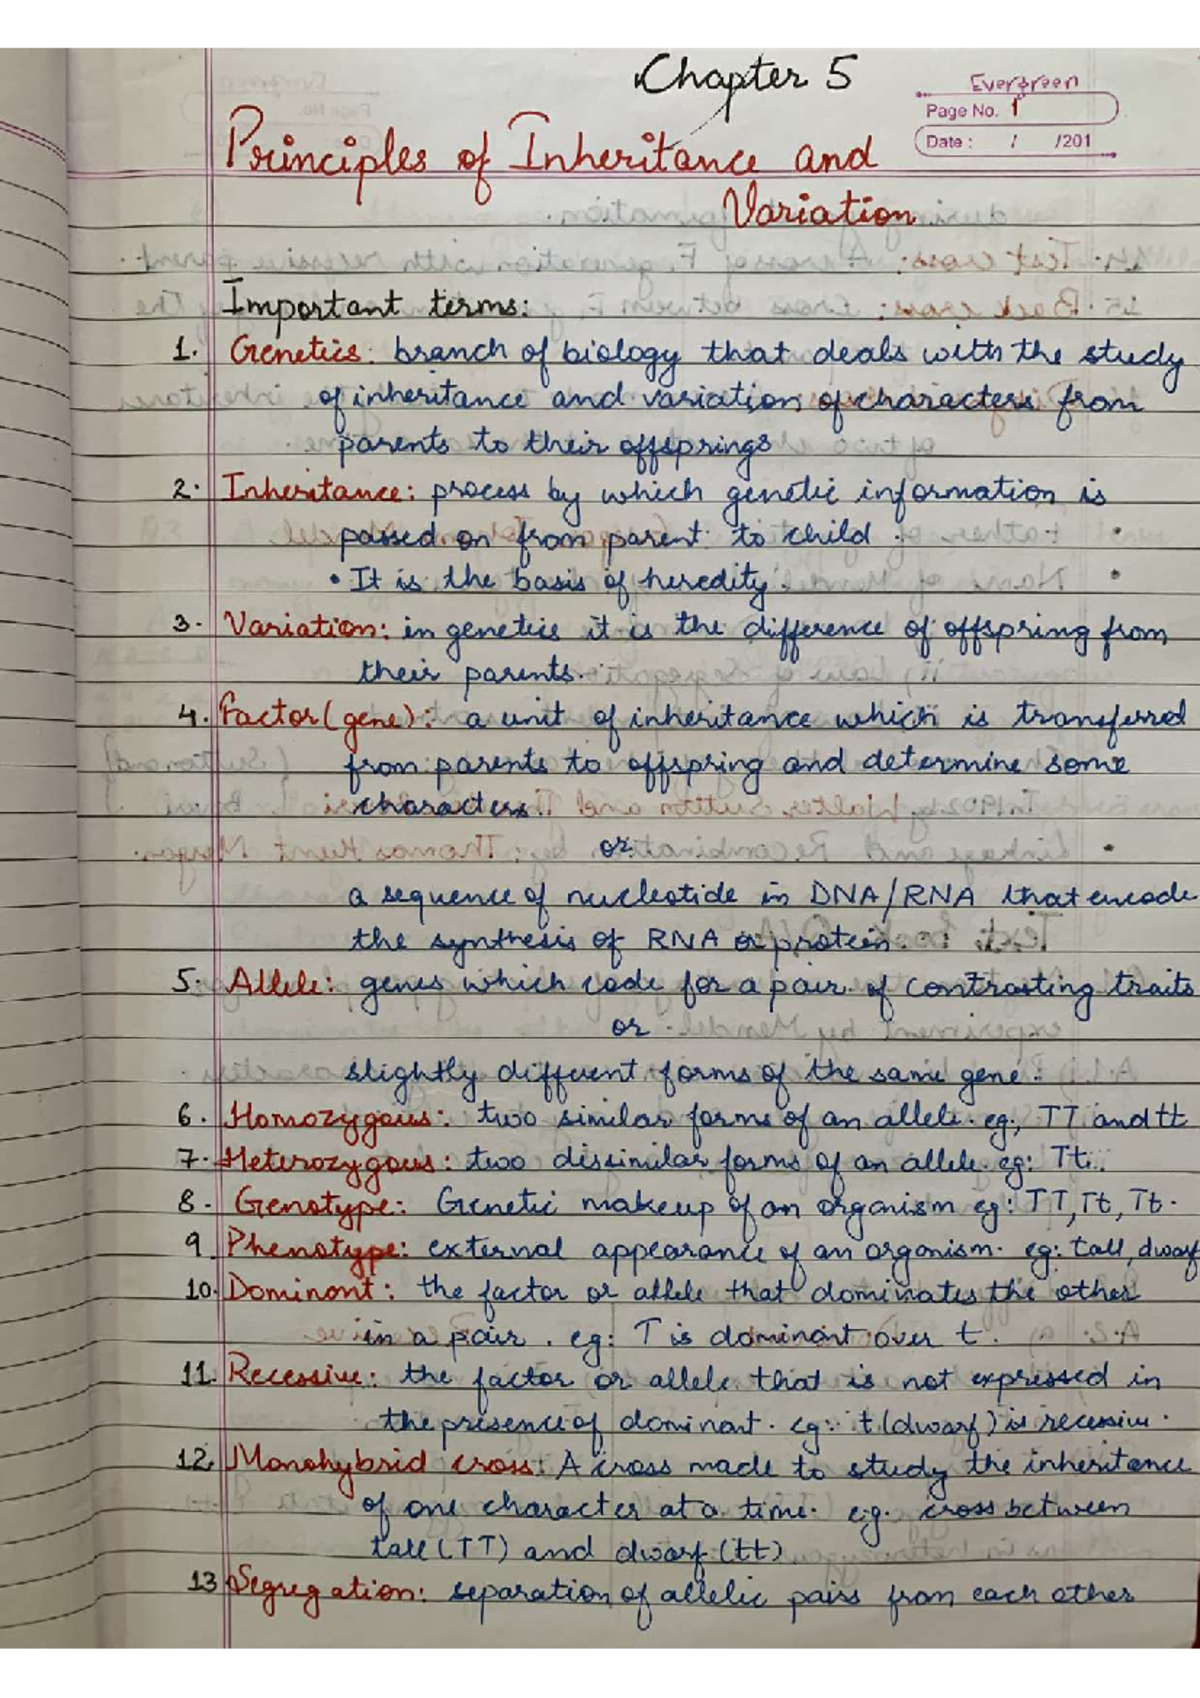 Chapter 5
Evergreen
Page No. 1
Date : / /201
Principles of Inheritance and
Variation
Important terms:
1. Genetics: branch of biology that deals with the study
of inheritance and variation of characters from
parents to their offsprings
2. Inheritance: process by which genetic information is
passed on from parent to child.
• It is the basis of heredity.
3. Variation: in genetics it is the difference of offspring from
their parents.
4. Factor (gene): a unit of inheritance which is transferred
from parents to offspring and determine some
characters.
or
a sequence of nucleotide in DNA/RNA that encode
the synthesis of RNA or protein.
5. Allele: genes which code for a pair of contrasting traits
or
slightly different forms of the same gene.
6. Homozygous: two similar forms of an allele. eg., TT and tt
7. Heterozygous: two dissimilar forms of an allele. eg: Tt.
8. Genotype: Genetic makeup of an organism eg: TT, Tt, Tt.
9. Phenotype: external appearance of an organism. eg: tall, dwarf
10. Dominant: the factor or allele that dominates the other
in a pair. eg: T is dominant over t.
11. Recessive: the factor or allele that is not expressed in
the presence of dominant. eg: t (dwarf) is recessive.
12. Monohybrid cross: A cross made to study the inheritance
of one character at a time. e.g. cross between
tall (TT) and dwarf (tt)
13. Segregation: separation of allelic pairs from each other